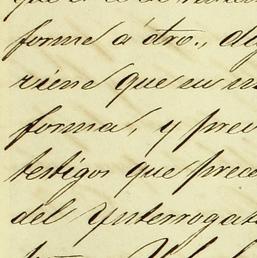 que
forme a dro., dij
viene que en un
forma, y prev
testigos que prece
del Ynterrogato